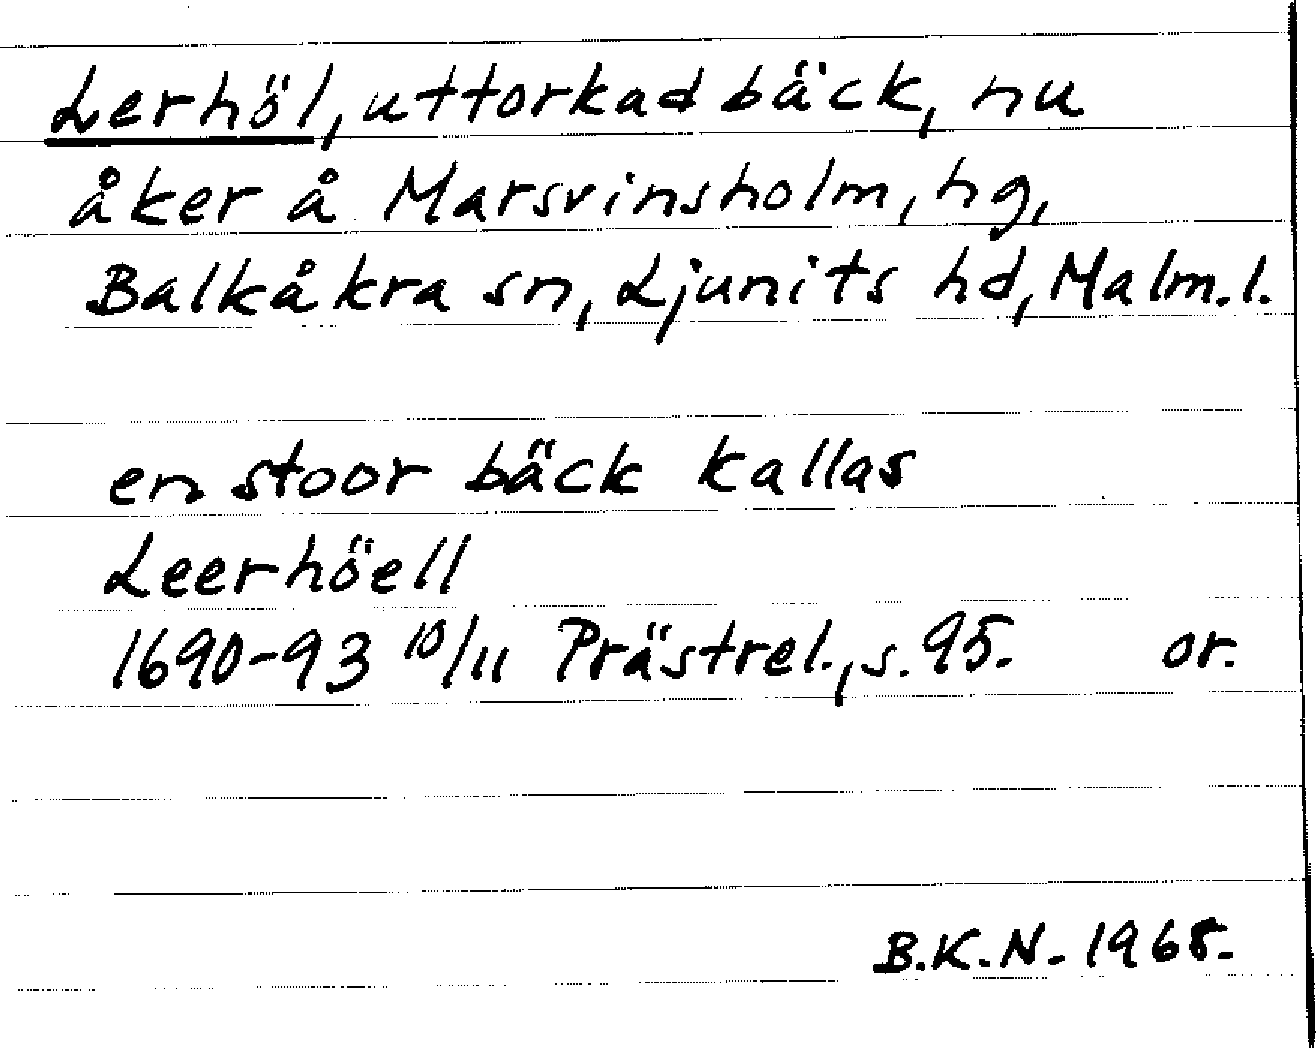 Lerhöl, uttorkad bäck, nu
åker å Marsvinsholm, hg,
Balkåkra sn, Ljunits hd, Malm.l.
en stoor bäck kallas
Leerhöell
1690-93 10/11 Prästrel., s. 95. or.
B.K.N. 1968.